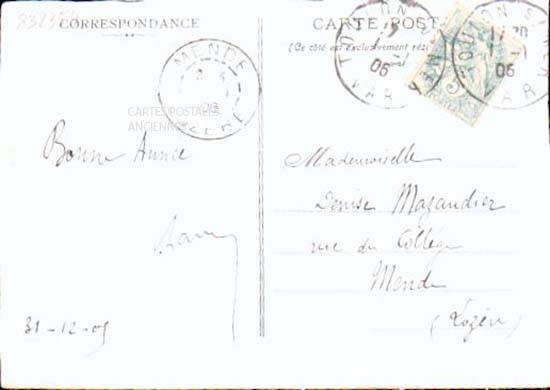 CORRESPONDANCE
MENDE
LOZERE
CARTES POSTALES
ANCIENNES
Bonne Année
31-12-05
CARTE POST
(Ce côté est exclusivement rés
TOULON S MER
VAR
06
TOULON S MER
VAR
06
Mademoiselle
Denise Mazaudier
rue du Collége
Mende
(Lozère)